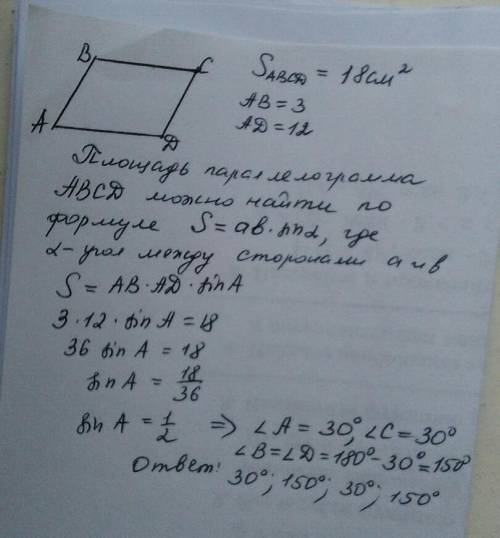 B
C
A
D
S_ABCD = 18см²
AB = 3
AD = 12
Площадь параллелограмма
ABCD можно найти по
формуле S = ab·sinα, где
α - угол между сторонами a и b
S = AB·AD·sinA
3·12·sin A = 18
36 sin A = 18
sin A = 18/36
sin A = 1/2 => ∠A = 30°, ∠C = 30°
∠B = ∠D = 180° - 30° = 150°
Ответ: 30°; 150°; 30°; 150°